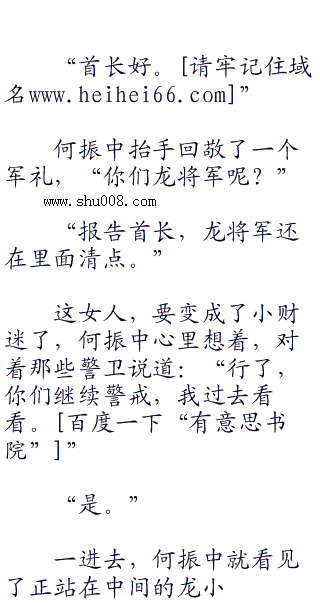 “首长好。[请牢记住域
名www.heihei66.com]”
何振中抬手回敬了一个
军礼，“你们龙将军呢？”
www.shu008.com
“报告首长，龙将军还
在里面清点。”
这女人，要变成了小财
迷了，何振中心里想着，对
着那些警卫说道：“行了，
你们继续警戒，我过去看
看。[百度一下“有意思书
院”]”
“是。”
一进去，何振中就看见
了正站在中间的龙小